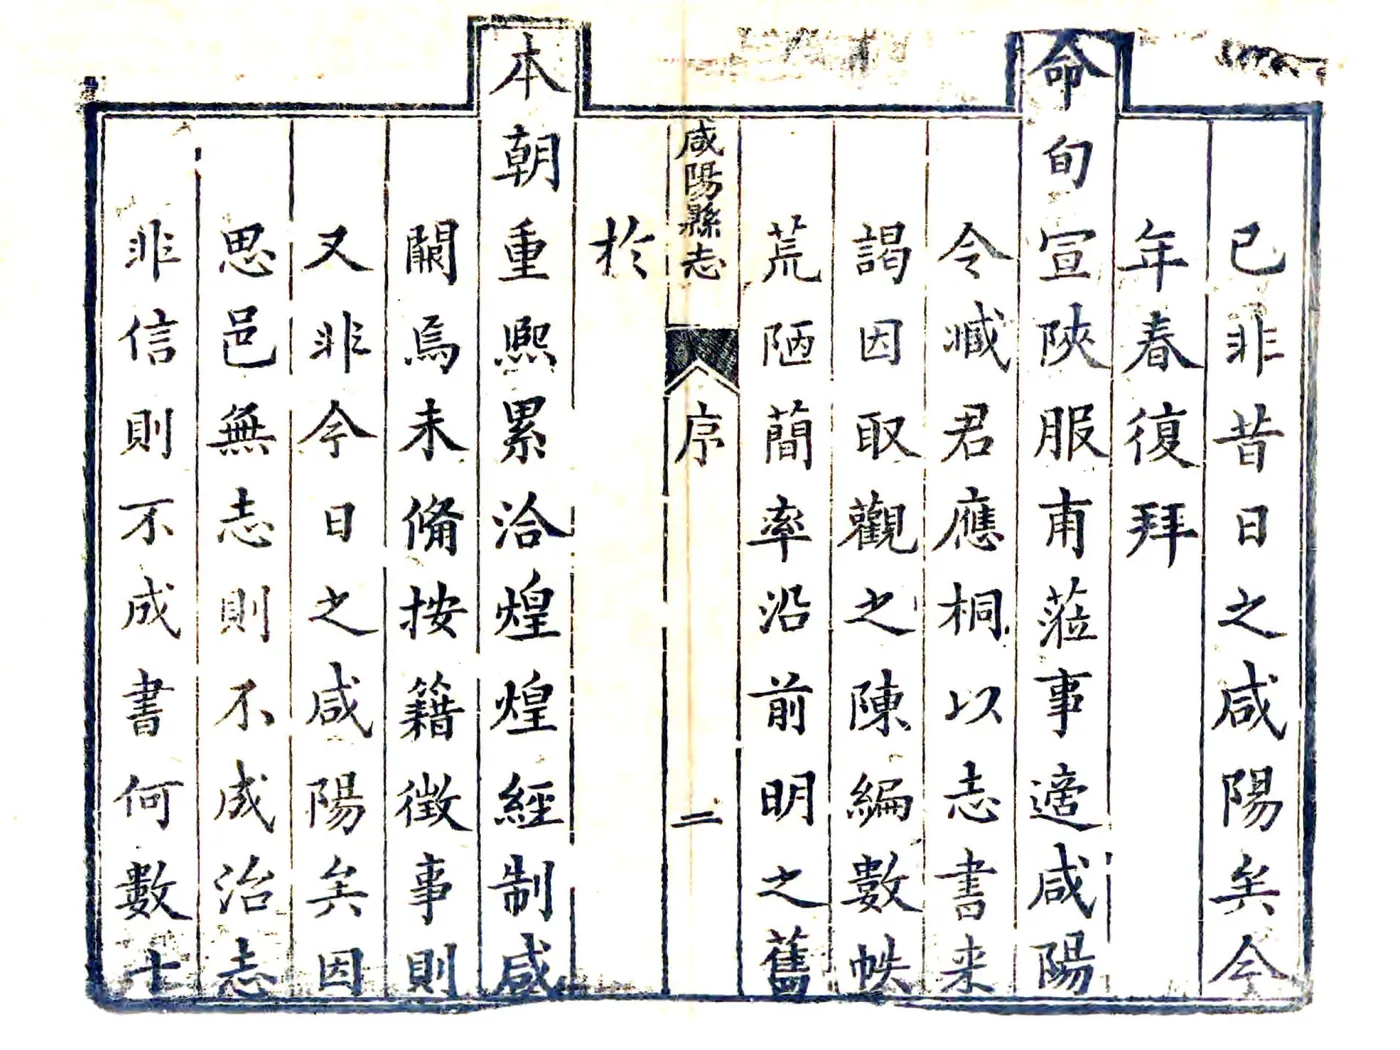 已非昔日之咸陽矣今
年春復拜
命旬宣陝服甫蒞事適咸陽
令臧君應桐以志書来
謁因取觀之陳編數帙
荒陋簡率沿前明之舊
咸陽縣志
序
二
於
本朝重熙累洽煌煌經制咸
闕焉未備按籍徴事則
又非今日之咸陽矣因
思邑無志則不成治志
非信則不成書何數十